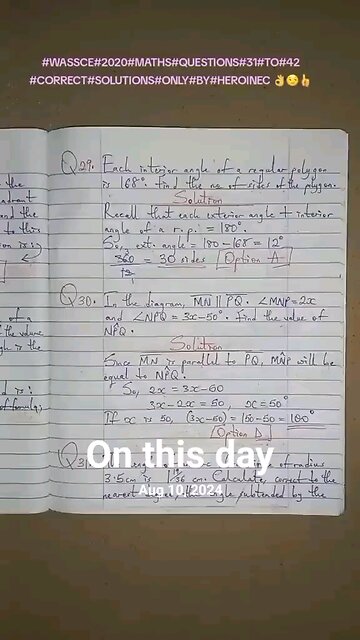 #WASSCE#2020#MATHS#QUESTIONS#31#TO#42
#CORRECT#SOLUTIONS#ONLY#BY#HEROINEC 👌😏🫰
Q29. Each interior angle of a regular polygon
is 168°. find the no of sides of the polygon.
Solution
Recall that each exterior angle + interior
angle of a r.p. = 180°.
So, ext. angle = 180 - 168 = 12°
360/12 = 30 sides Option A
Q30. In the diagram, MN || PQ. ∠MNP = 2x
and ∠NPQ = 3x-50°. Find the value of
NPQ.
Solution
Since MN is parallel to PQ, MNP will be
equal to NPQ.
So, 2x = 3x-60
3x-2x = 50, x=50°
If x is 50, (3x-50) = 150-50 = 100°
Option D
On this day
Q3 of radius
3.5cm is cm. Calculate, correct to the
nearest subtended by the
Aug 10, 2024
the
and the
to this
is:
of a
the volume
is the
is: